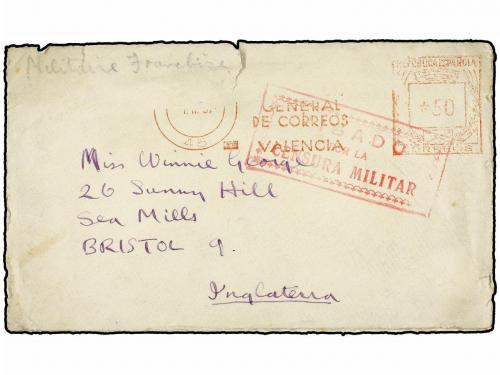 Militaire Franchise
REPUBLICA ESPAÑOLA
*50
CORREOS
GENERAL
DE CORREOS
VALENCIA
46
CENSURA MILITAR
Miss Winnie George
26 Sunny Hill
Sea Mills
BRISTOL 9.
Inglaterra